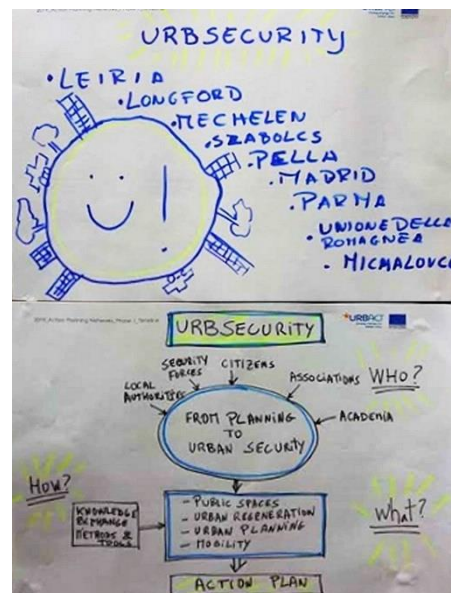 URBSECURITY
• LEIRIA
• LONGFORD
• MECHELEN
• SZABOLCS
• PELLA
• MADRID
• PARMA
• UNIONE DELLA
ROMAGNEA
• MICMALOVCE
URBACT
URBSECURITY
SECURITY
FORCES
CITIZENS
LOCAL
AUTHORITIES
ASSOCIATIONS
WHO?
ACADEMIA
FROM PLANNING
TO
URBAN SECURITY
HOW?
KNOWLEDGE
EXCHANGE
METHODS &
TOOLS
- PUBLIC SPACES
- URBAN REGENERATION
- URBAN PLANNING
- MOBILITY
What?
ACTION PLAN